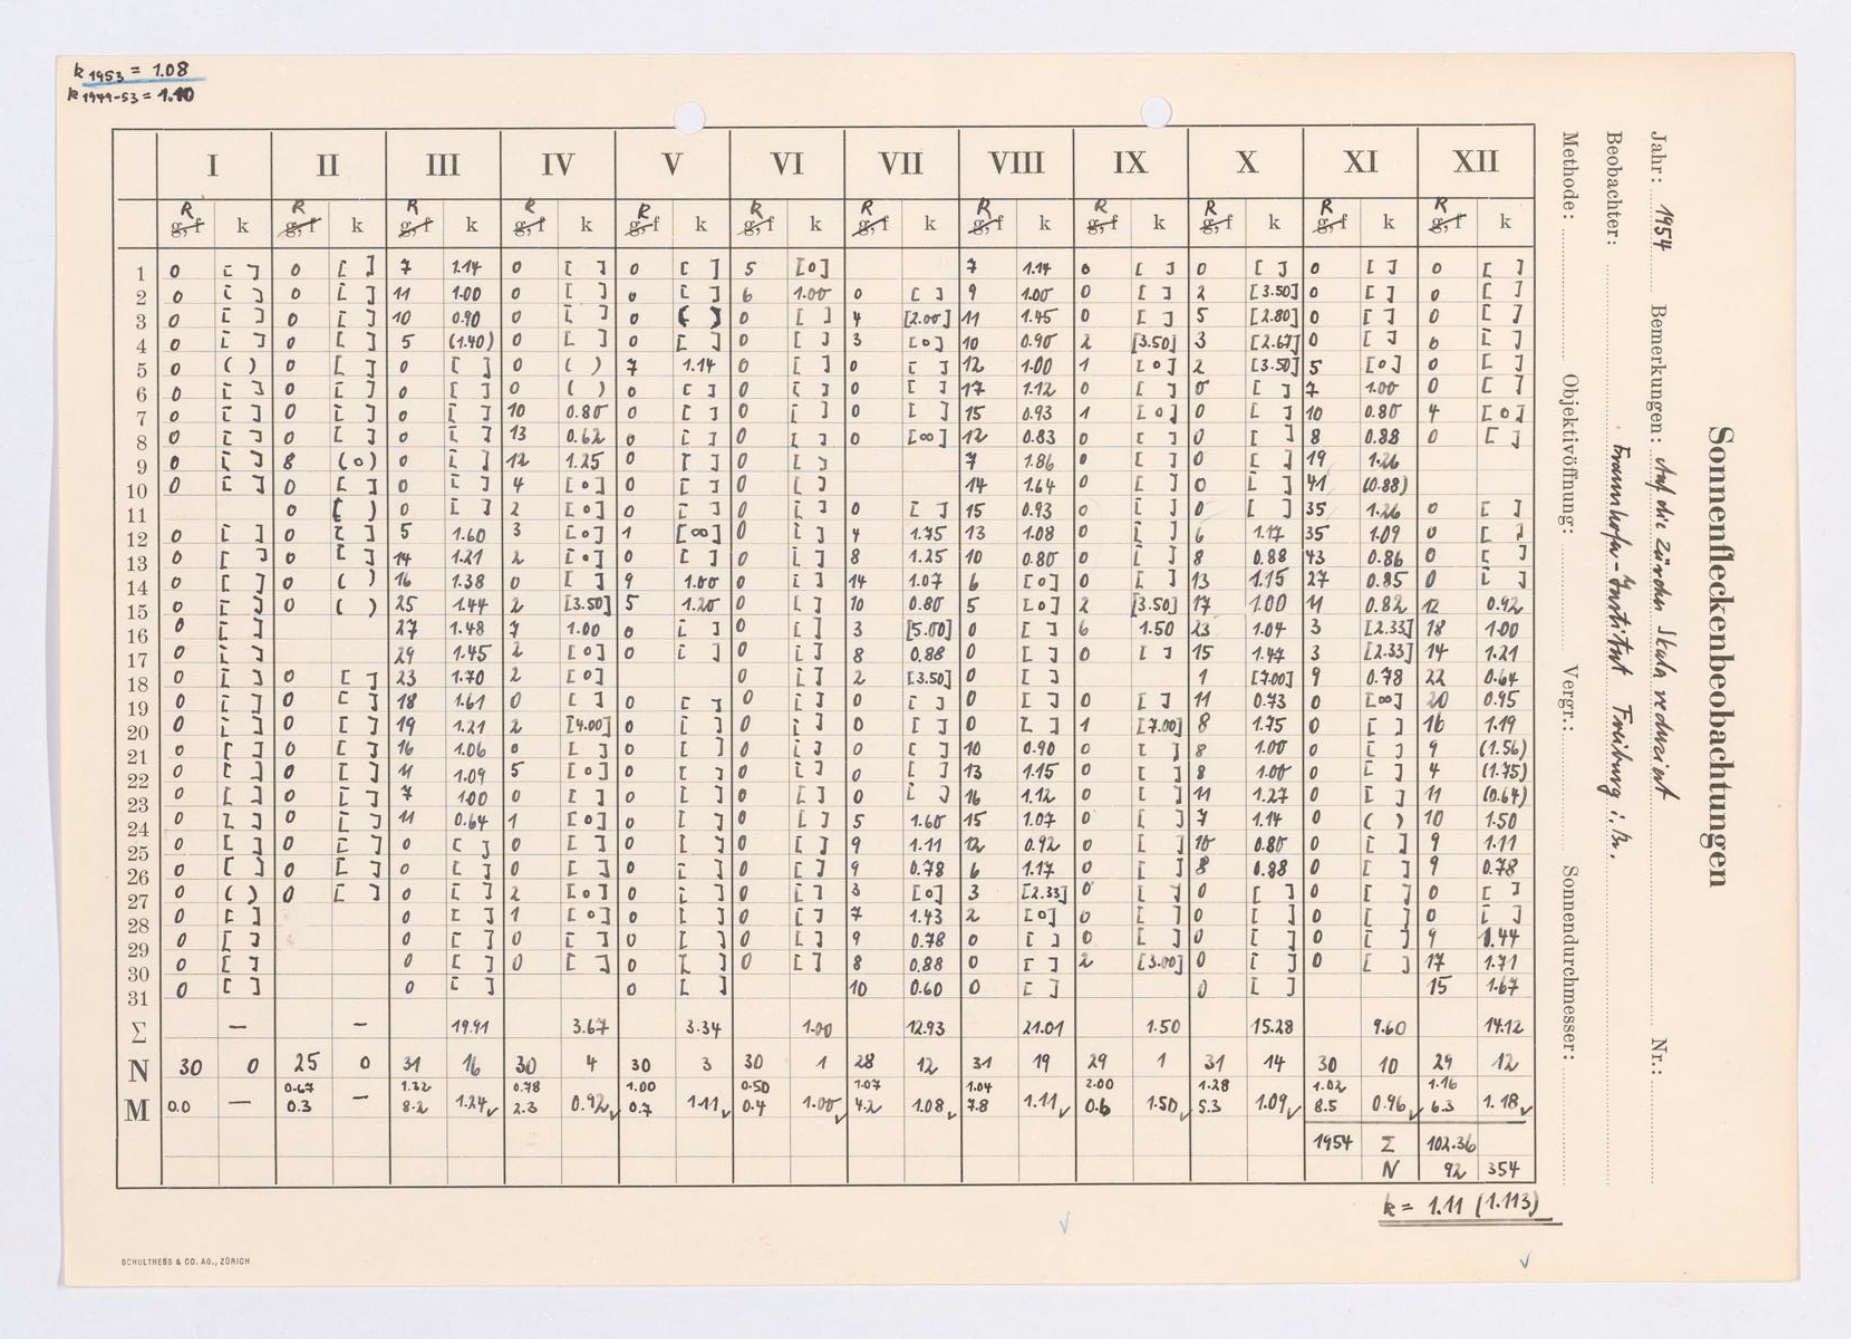 k 1953 = 1.08
k 1949-53 = 1.10
Sonnenfleckenbeobachtungen
Jahr: 1954 Bemerkungen: Auf die Zürcher Skala reduziert Nr.:
Beobachter: Fraunhofer-Institut Freiburg i. Br.
Methode: Objektivöffnung: Vergr.: Sonnendurchmesser:
I II III IV V VI VII VIII IX X XI XII
R R R R R R R R R R R R
g,f k g,f k g,f k g,f k g,f k g,f k g,f k g,f k g,f k g,f k g,f k g,f k
1 0 [ ] 0 [ ] 7 1.14 0 [ ] 0 [ ] 5 [0] 7 1.14 0 [ ] 0 [ ] 0 [ ] 0 [ ]
2 0 [ ] 0 [ ] 11 1.00 0 [ ] 0 [ ] 6 1.00 0 [ ] 9 1.00 0 [ ] 2 [3.50] 0 [ ] 0 [ ]
3 0 [ ] 0 [ ] 10 0.90 0 [ ] 0 ( ) 0 [ ] 4 [2.00] 11 1.45 0 [ ] 5 [2.80] 0 [ ] 0 [ ]
4 0 [ ] 0 [ ] 5 (1.40) 0 [ ] 0 [ ] 0 [ ] 3 [0] 10 0.90 2 [3.50] 3 [2.67] 0 [ ] 0 [ ]
5 0 ( ) 0 [ ] 0 [ ] 0 ( ) 7 1.14 0 [ ] 0 [ ] 12 1.00 1 [0] 2 [3.50] 5 [0] 0 [ ]
6 0 [ ] 0 [ ] 0 [ ] 0 ( ) 0 [ ] 0 [ ] 0 [ ] 17 1.12 0 [ ] 0 [ ] 7 1.00 0 [ ]
7 0 [ ] 0 [ ] 0 [ ] 10 0.80 0 [ ] 0 [ ] 0 [ ] 15 0.93 1 [0] 0 [ ] 10 0.80 4 [0]
8 0 [ ] 0 [ ] 0 [ ] 13 0.62 0 [ ] 0 [ ] 0 [∞] 12 0.83 0 [ ] 0 [ ] 8 0.88 0 [ ]
9 0 [ ] 8 (0) 0 [ ] 12 1.25 0 [ ] 0 [ ] 7 1.86 0 [ ] 0 [ ] 19 1.26
10 0 [ ] 0 [ ] 0 [ ] 4 [0] 0 [ ] 0 [ ] 14 1.64 0 [ ] 0 [ ] 41 (0.88)
11 0 [ ) 0 [ ] 2 [0] 0 [ ] 0 [ ] 0 [ ] 15 0.93 0 [ ] 0 [ ] 35 1.26 0 [ ]
12 0 [ ] 0 [ ] 5 1.60 3 [0] 1 [∞] 0 [ ] 4 1.75 13 1.08 0 [ ] 6 1.17 35 1.09 0 [ ]
13 0 [ ] 0 [ ] 14 1.21 2 [0] 0 [ ] 0 [ ] 8 1.25 10 0.80 0 [ ] 8 0.88 43 0.86 0 [ ]
14 0 [ ] 0 ( ) 16 1.38 0 [ ] 9 1.00 0 [ ] 14 1.07 6 [0] 0 [ ] 13 1.15 27 0.85 0 [ ]
15 0 [ ] 0 ( ) 25 1.44 2 [3.50] 5 1.20 0 [ ] 10 0.80 5 [0] 2 [3.50] 17 1.00 11 0.82 12 0.92
16 0 [ ] 27 1.48 7 1.00 0 [ ] 0 [ ] 3 [5.00] 0 [ ] 6 1.50 23 1.04 3 [2.33] 18 1.00
17 0 [ ] 29 1.45 2 [0] 0 [ ] 0 [ ] 8 0.88 0 [ ] 0 [ ] 15 1.47 3 [2.33] 14 1.21
18 0 [ ] 0 [ ] 23 1.70 2 [0] 0 [ ] 2 [3.50] 0 [ ] 1 [7.00] 9 0.78 22 0.64
19 0 [ ] 0 [ ] 18 1.61 0 [ ] 0 [ ] 0 [ ] 0 [ ] 0 [ ] 0 [ ] 11 0.73 0 [∞] 20 0.95
20 0 [ ] 0 [ ] 19 1.21 2 [4.00] 0 [ ] 0 [ ] 0 [ ] 0 [ ] 1 [7.00] 8 1.75 0 [ ] 16 1.19
21 0 [ ] 0 [ ] 16 1.06 0 [ ] 0 [ ] 0 [ ] 0 [ ] 10 0.90 0 [ ] 8 1.00 0 [ ] 9 (1.56)
22 0 [ ] 0 [ ] 11 1.09 5 [0] 0 [ ] 0 [ ] 0 [ ] 13 1.15 0 [ ] 8 1.00 0 [ ] 4 (1.75)
23 0 [ ] 0 [ ] 7 1.00 0 [ ] 0 [ ] 0 [ ] 0 [ ] 16 1.12 0 [ ] 11 1.27 0 [ ] 11 (0.64)
24 0 [ ] 0 [ ] 11 0.64 1 [0] 0 [ ] 0 [ ] 5 1.60 15 1.07 0 [ ] 7 1.14 0 ( ) 10 1.50
25 0 [ ] 0 [ ] 0 [ ] 0 [ ] 0 [ ] 0 [ ] 9 1.11 12 0.92 0 [ ] 10 0.80 0 [ ] 9 1.11
26 0 [ ] 0 [ ] 0 [ ] 0 [ ] 0 [ ] 0 [ ] 9 0.78 6 1.17 0 [ ] 8 0.88 0 [ ] 9 0.78
27 0 ( ) 0 [ ] 0 [ ] 2 [0] 0 [ ] 0 [ ] 3 [0] 3 [2.33] 0 [ ] 0 [ ] 0 [ ] 0 [ ]
28 0 [ ] 0 [ ] 1 [0] 0 [ ] 0 [ ] 7 1.43 2 [0] 0 [ ] 0 [ ] 0 [ ] 0 [ ]
29 0 [ ] 0 [ ] 0 [ ] 0 [ ] 0 [ ] 9 0.78 0 [ ] 0 [ ] 0 [ ] 0 [ ] 9 1.44
30 0 [ ] 0 [ ] 0 [ ] 0 [ ] 0 [ ] 8 0.88 0 [ ] 2 [3.00] 0 [ ] 0 [ ] 17 1.71
31 0 [ ] 0 [ ] 0 [ ] 10 0.60 0 [ ] 0 [ ] 15 1.67
Σ — — 19.91 3.67 3.34 1.00 12.93 21.01 1.50 15.28 9.60 14.12
N 30 0 25 0 31 16 30 4 30 3 30 1 28 12 31 19 29 1 31 14 30 10 29 12
0.67 1.22 0.78 1.00 0.50 1.07 1.04 2.00 1.28 1.02 1.16
M 0.0 — 0.3 — 8.2 1.24✓ 2.3 0.92✓ 0.7 1.11✓ 0.4 1.00✓ 4.2 1.08✓ 7.8 1.11✓ 0.6 1.50✓ 5.3 1.09✓ 8.5 0.96✓ 6.3 1.18✓
1954 Σ 102.36
N 92 354
k = 1.11 (1.113)
SCHULTHESS & CO. AG., ZÜRICH